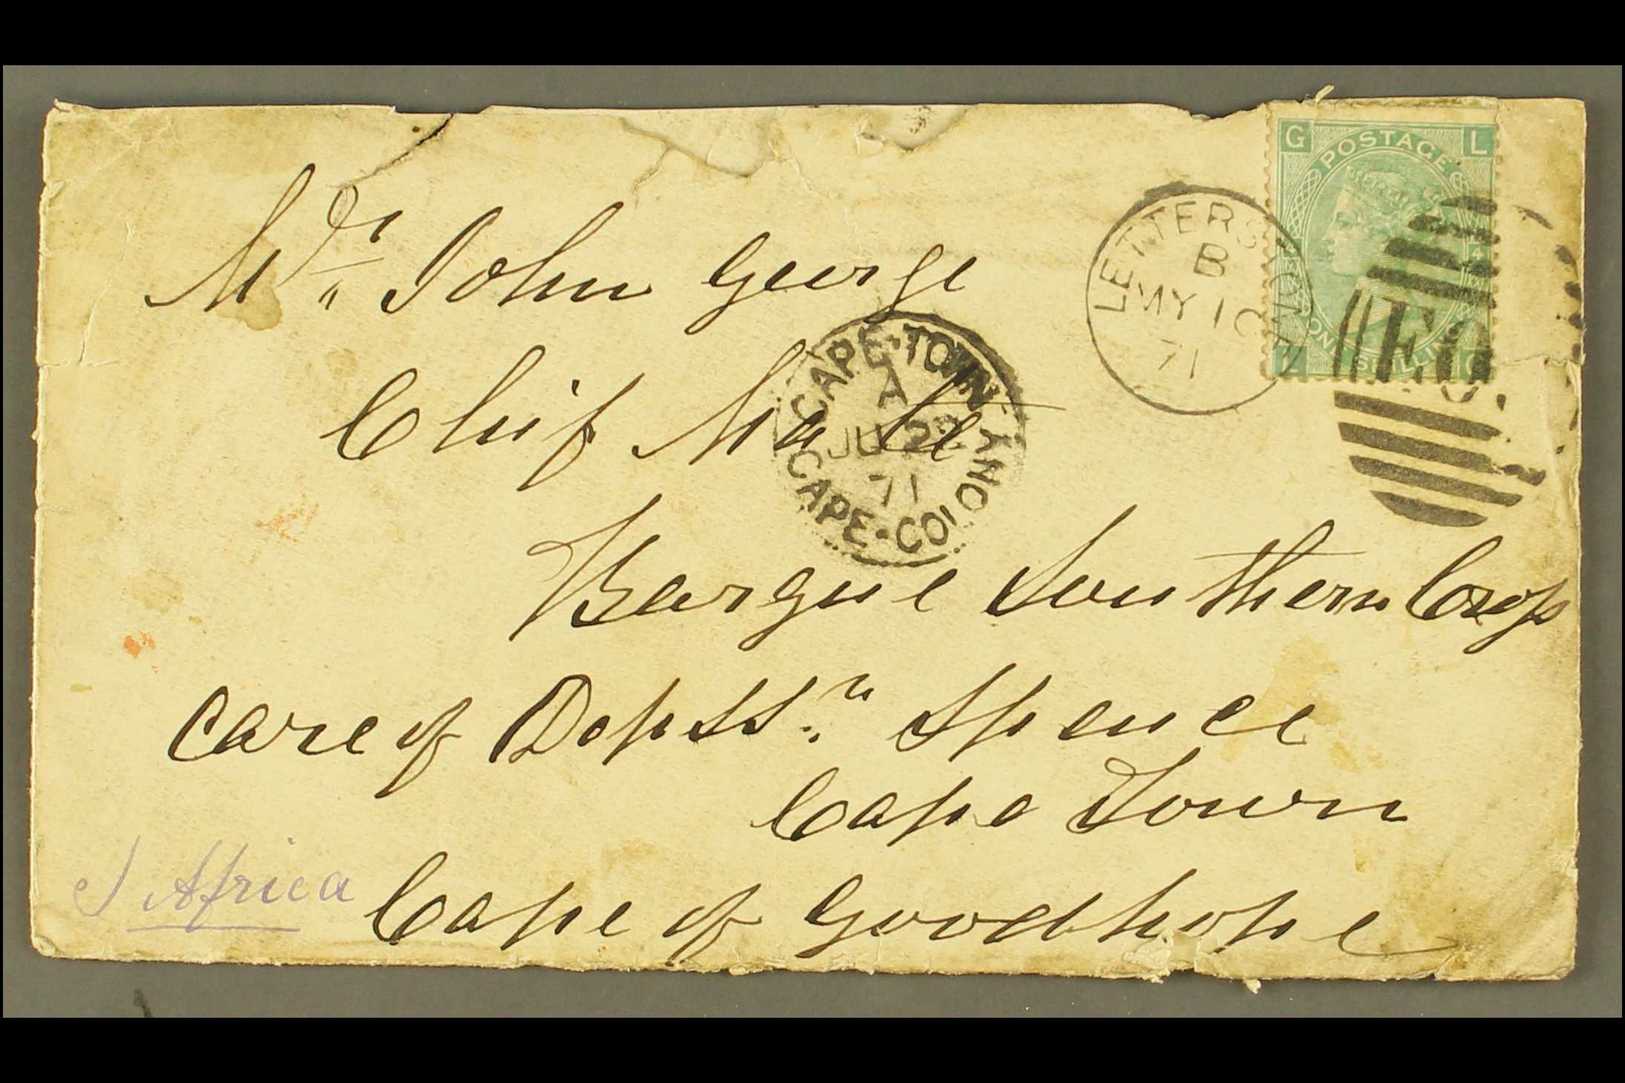 G POSTAGE L
LETTERS
B
MY 10
71
ONE SHILLING
L G
Mr. John George
CAPE·TOWN
A
JU 22
71
CAPE·COLONY
Chif Mate
Barque Southern Crops
care of Dopss.rs Spence
Cape Town
S Africa
Cape of Goodhope